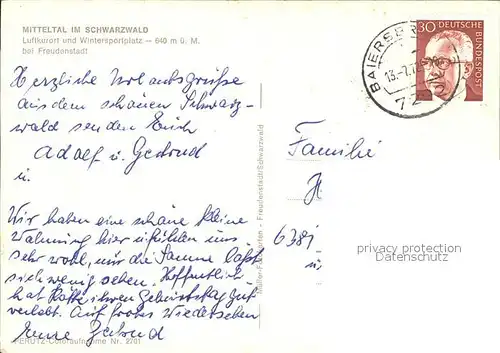 MITTELTAL IM SCHWARZWALD
Luftkurort und Wintersportplatz – 640 m ü. M.
bei Freudenstadt
Herzliche Urlaubsgrüße
aus dem schönen Schwarz-
wald senden Euch
Adolf u. Gertrud
u.
Wir haben eine schöne kleine
Wohnung hier u. fühlen uns
sehr wohl, nur die Sonne läßt
sich wenig sehen. Hoffentlich
hat Käthi ihren Geburtstag gut
verlebt. Auf frohes Wiedersehen
Eure Gertrud
PERUTZ-Coloraufnahme Nr. 2701
Freudenstadt/Schwarzwald
30 DEUTSCHE
BUNDESPOST
BAIERSBR
13.-7.7
72
Familie
H
638
privacy protection
Datenschutz